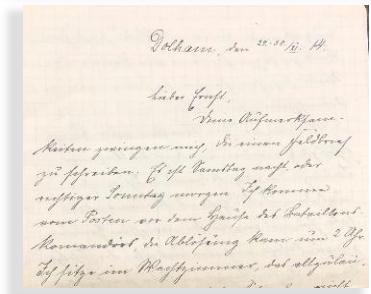 Dolhain, den 29.-30./XI. 14.
Lieber Ernst,
Deine Aufmerksam-
keiten zwingen mich, dir einen Feldbrief
zu schreiben. Es ist Samstag nacht oder
richtiger Sonntag morgen. Ich komme
vom Posten vor dem Hause des Bataillons
Komandörs, die Ablösung kam um 2 Uhr.
Ich sitze im Wachtzimmer, das